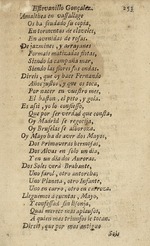 Estevanillo Gonçalez. 
Amalthea en vassallage
Os ha fundado la copia,
En torrentes de claveles,
En avenidas de rosas.
De jazmines, y arrayanes
Formais matizadas flotas,
Siendo la campaña mar,
Siendo las flores sus ondas.
Direis, que oy hace Fernando
Años justos, y que os toca,
Por nacer en vuestro mes,
El baston, el peto, y gola.
Es assi, yo lo confiesso,
Que por ser verdad que consta,
Oy Madrid se regocija,
Oy Bruselas se alborota.
Oy Mayo ha de aver dos Mayos,
Dos Primaveras hermosas,
Dos Alvas en un solo dia,
Y en un dia dos Auroras.
Dos Soles verà Brabante,
Uno farol, otro antorcha,
Uno Planeta, otro Infante,
Uno en carro, otro en carroza.
Lleguemos à cuentas, Mayo,
Y confessad sin lisonja,
Qual merece mas aplausos,
A quien mas tributos le tocan.
Direis, que por mas antiguo